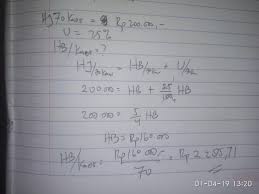 Hj 70 kaos = Rp 200.000,-
U = 25%
HB/kaos = ?
HJ/70 kaos = HB/70 kaos + U/70 kaos
200.000 = HB + 25/100 HB
200.000 = 5/4 HB
HB = Rp 160.000
HB/kaos = Rp 160.000,-/70 = Rp 2.285,71
01-04-19 13:20